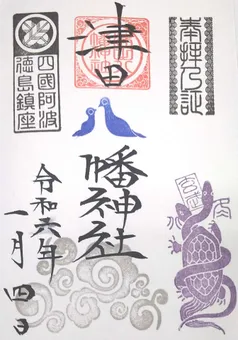 奉拝乃証
津田
幡神社
四國阿波
徳島鎮座
令和六年
一月四日